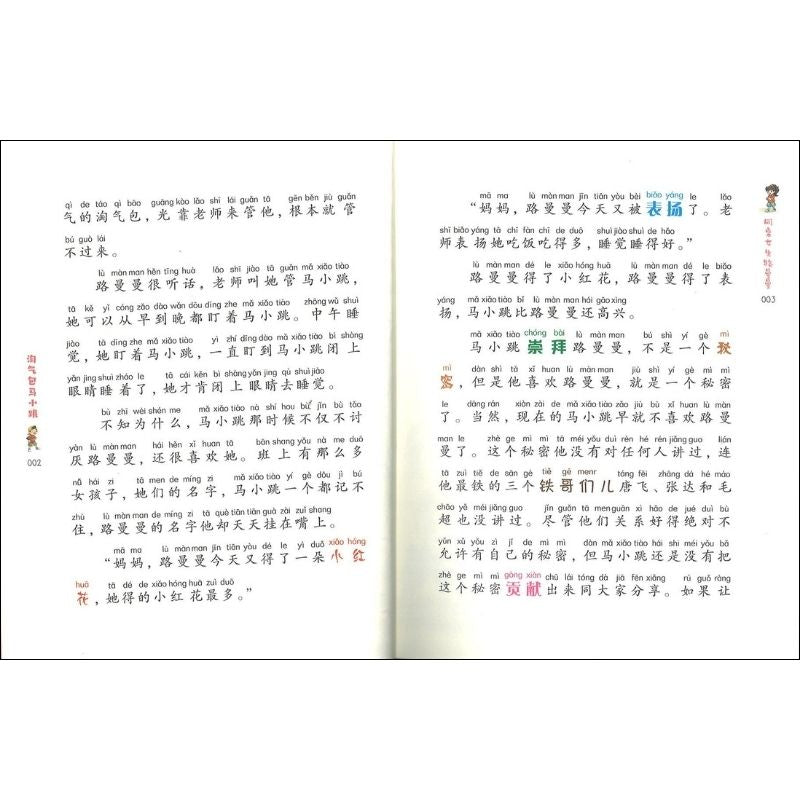 qì de táo qì bāo guāng kào lǎo shī lái guǎn tā gēn běn jiù guǎn
气的淘气包，光靠老师来管他，根本就管
bú guò lái
不过来。
lù màn man hěn tīng huà lǎo shī jiào tā guǎn mǎ xiǎo tiào
路曼曼很听话，老师叫她管马小跳，
tā kě yǐ cóng zǎo dào wǎn dōu dīng zhe mǎ xiǎo tiào zhōng wǔ shuì
她可以从早到晚都盯着马小跳。中午睡
jiào tā dīng zhe mǎ xiǎo tiào yì zhí dīng dào mǎ xiǎo tiào bì shàng
觉，她盯着马小跳，一直盯到马小跳闭上
yǎn jing shuì zháo le tā cái kěn bì shàng yǎn jing qù shuì jiào
眼睛睡着了，她才肯闭上眼睛去睡觉。
bù zhī wèi shén me mǎ xiǎo tiào nà shí hou bù jǐn bù tǎo
不知为什么，马小跳那时候不仅不讨
yàn lù màn man hái hěn xǐ huan tā bān shang yǒu nà me duō
厌路曼曼，还很喜欢她。班上有那么多
nǚ hái zi tā men de míng zi mǎ xiǎo tiào yí gè dōu jì bú
女孩子，她们的名字，马小跳一个都记不
zhù lù màn man de míng zi tā què tiān tiān guà zài zuǐ shang
住，路曼曼的名字他却天天挂在嘴上。
mā ma lù màn man jīn tiān yòu dé le yì duǒ xiǎo hóng
“妈妈，路曼曼今天又得了一朵小红
huā tā dé de xiǎo hóng huā zuì duō
花，她得的小红花最多。”
淘气包马小跳
002
mā ma lù màn man jīn tiān yòu bèi biǎo yáng le lǎo
“妈妈，路曼曼今天又被表扬了。老
shī biǎo yáng tā chī fàn chī de duō shuì jiào shuì de hǎo
师表扬她吃饭吃得多，睡觉睡得好。”
lù màn man dé le xiǎo hóng huā lù màn man dé le biǎo
路曼曼得了小红花，路曼曼得了表
yáng mǎ xiǎo tiào bǐ lù màn man hái gāo xìng
扬，马小跳比路曼曼还高兴。
mǎ xiǎo tiào chóng bài lù màn man bú shì yí gè mì
马小跳崇拜路曼曼，不是一个秘
mì dàn shì tā xǐ huan lù màn man jiù shì yí gè mì mì
密，但是他喜欢路曼曼，就是一个秘密
le dāng rán xiàn zài de mǎ xiǎo tiào zǎo jiù bù xǐ huan lù màn
了。当然，现在的马小跳早就不喜欢路曼
man le zhè ge mì mì tā méi yǒu duì rèn hé rén jiǎng guo lián
曼了。这个秘密他没有对任何人讲过，连
tā zuì tiě de sān gè tiě gē menr táng fēi zhāng dá hé máo
他最铁的三个铁哥们儿唐飞、张达和毛
chāo yě méi jiǎng guo jǐn guǎn tā men guān xì hǎo de jué duì bù
超也没讲过。尽管他们关系好得绝对不
yǔn xǔ yǒu zì jǐ de mì mì dàn mǎ xiǎo tiào hái shi méi yǒu bǎ
允许有自己的秘密，但马小跳还是没有把
zhè ge mì mì gòng xiàn chū lái tóng dà jiā fēn xiǎng rú guǒ ràng
这个秘密贡献出来同大家分享。如果让
同桌女生路曼曼
003